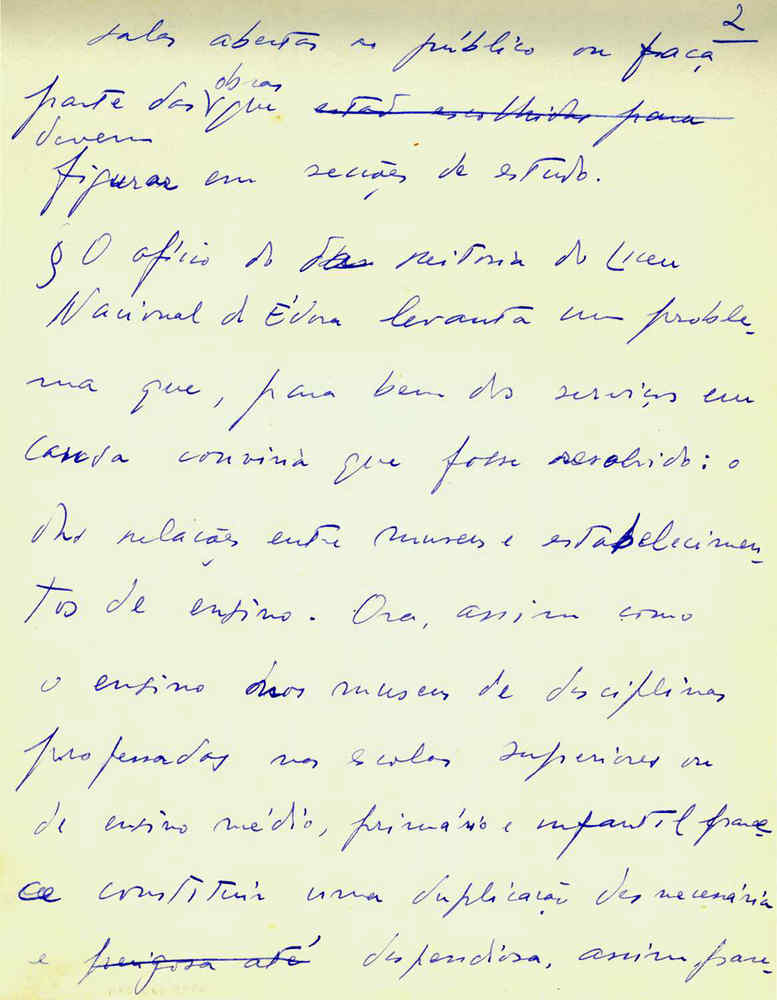 2
salas abertas ao público ou faça
parte das obras que estão escolhidas para
devem
figurar em secções de estudo.
§ O ofício do das reitoria do Liceu
Nacional de Évora levanta um proble-
ma que, para bem dos serviços em
causa conviria que fosse resolvido: o
das relações entre museus e estabelecimen-
tos de ensino. Ora, assim como
o ensino nos museus de disciplinas
professadas nas escolas superiores ou
de ensino médio, primário e infantil parece
ce constituir uma duplicação desnecessária
e perigosa até dispendiosa, assim, pare-